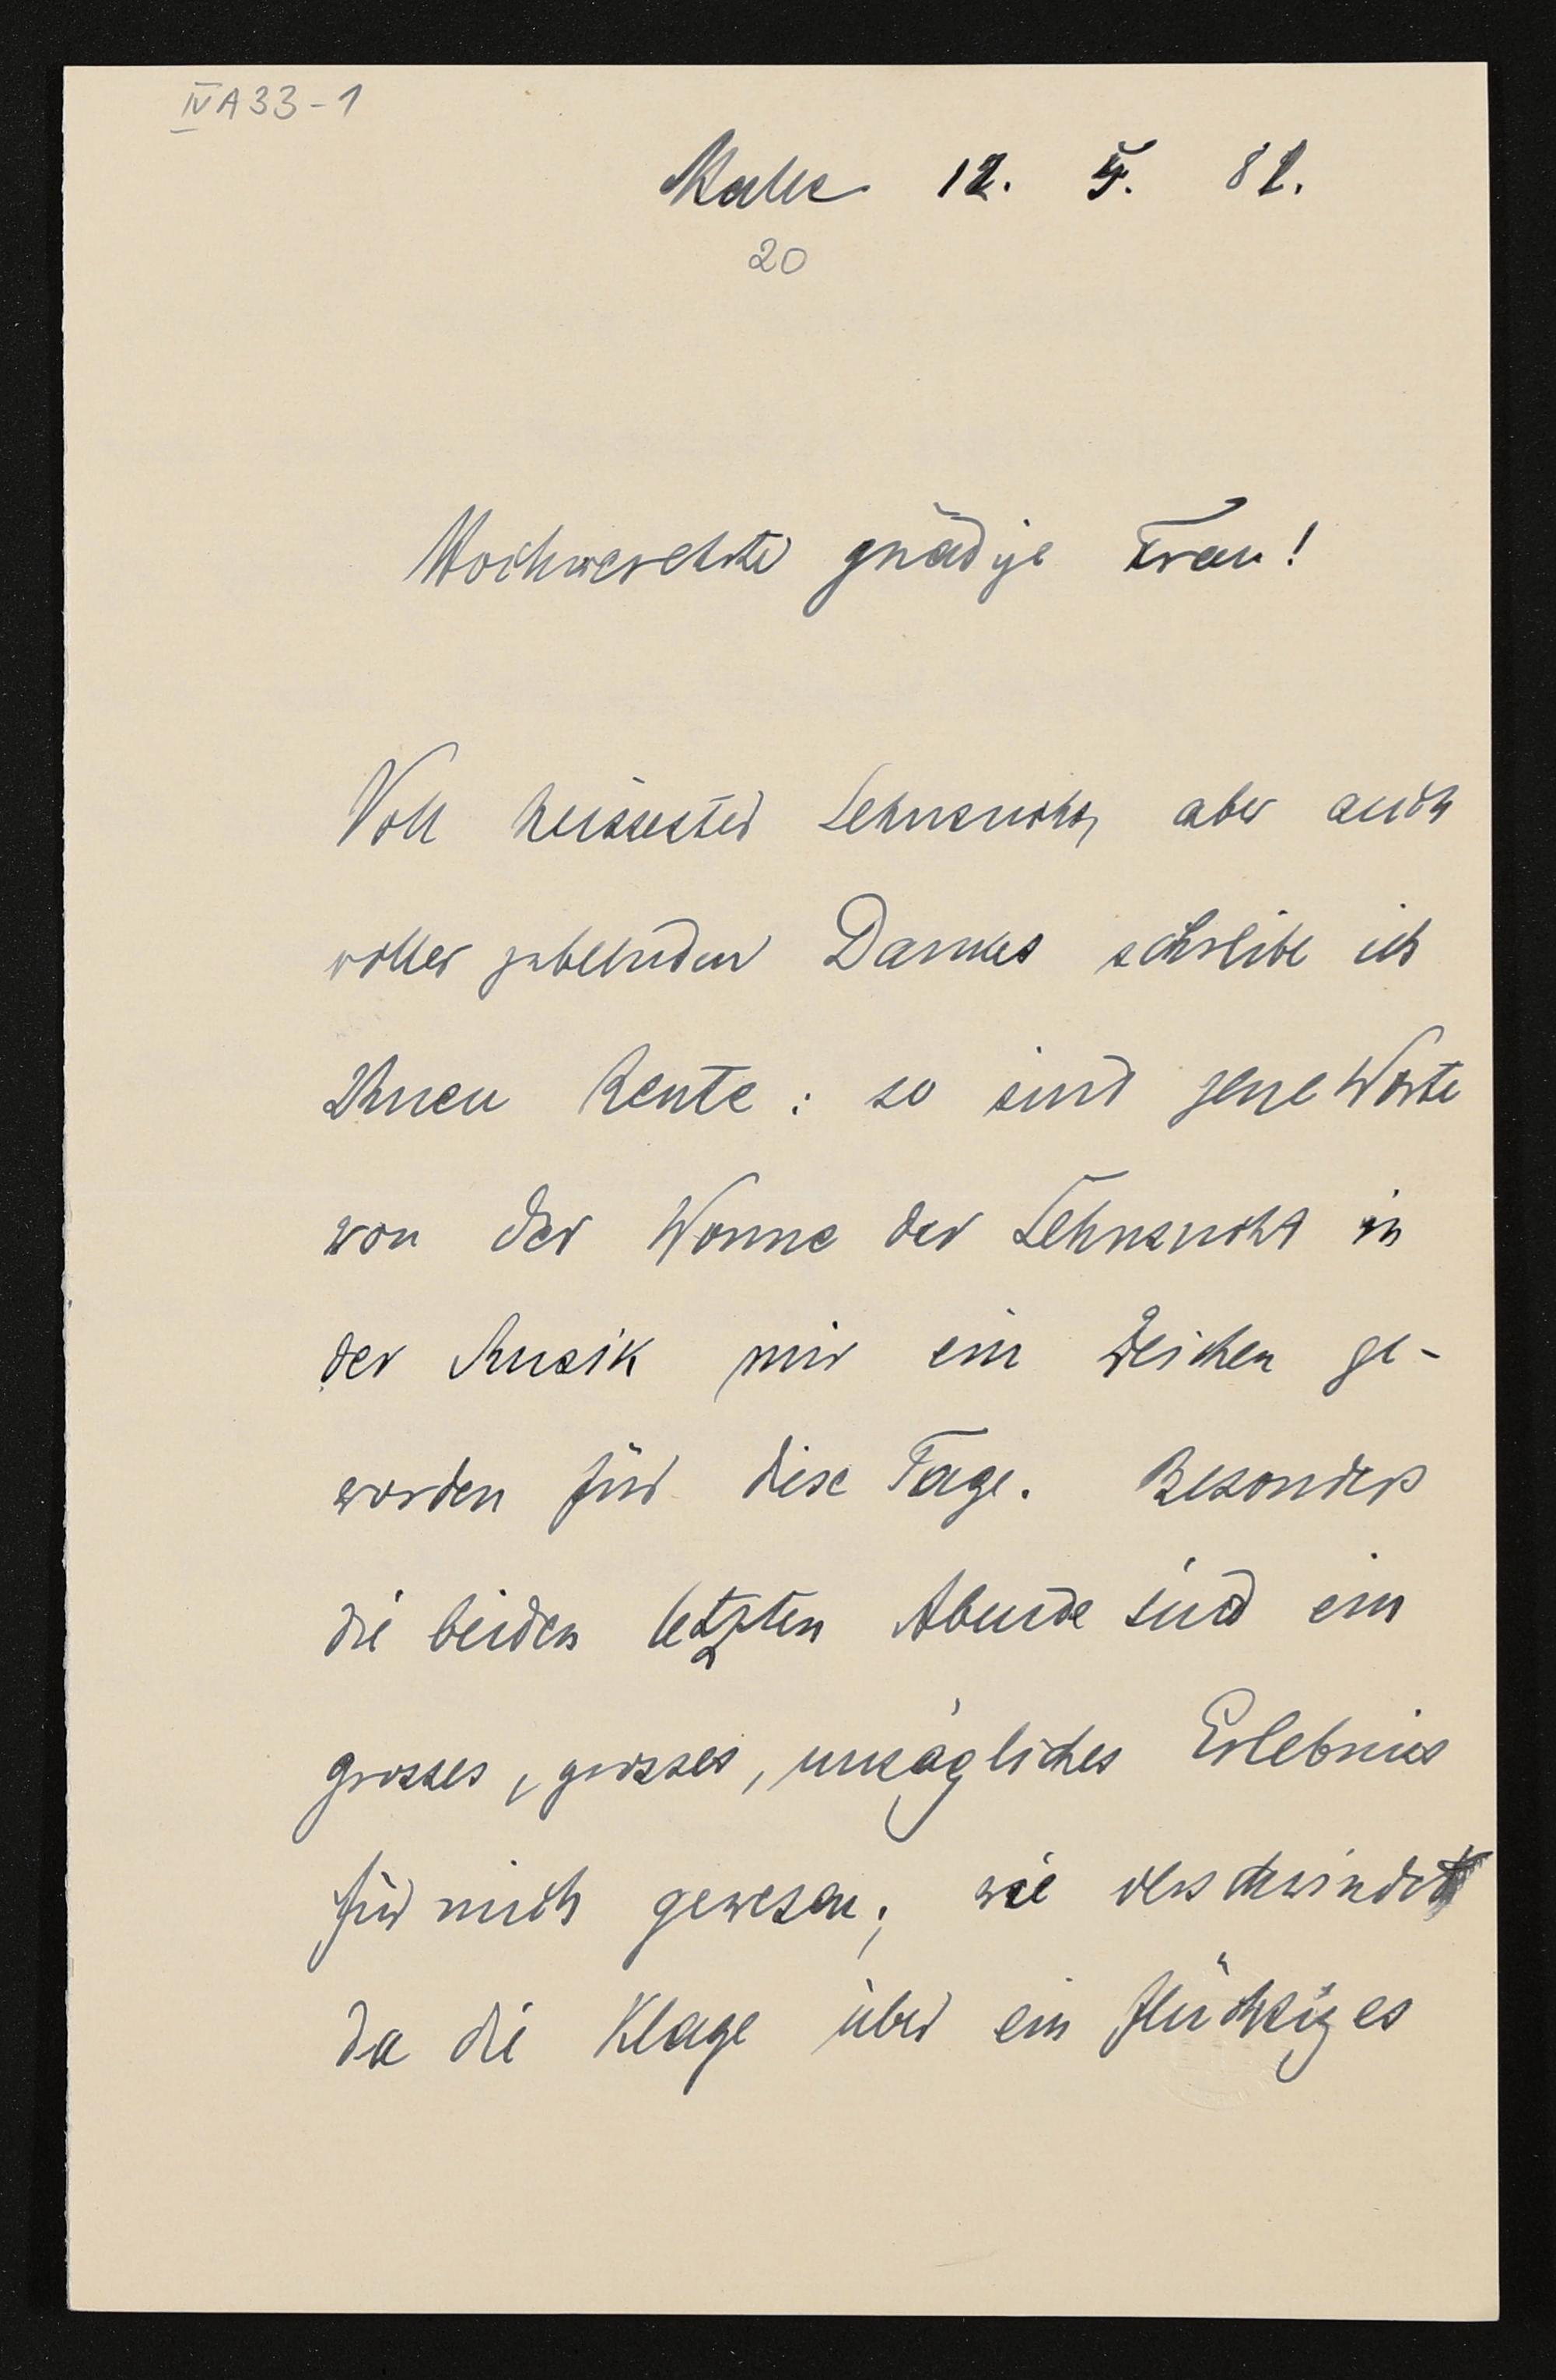 IV A 33 - 1
Halle 12. 5. 82.
20
Hochverehrte gnädige Frau!
Voll heissester Sehnsucht, aber auch
voller jubelnden Dankes schreibe ich
Ihnen heute: so sind jene Worte
von der Wonne der Sehnsucht in
der Musik mir ein Zeichen ge-
worden für diese Tage. Besonders
die beiden letzten Abende sind ein
grosses, grosses, unsägliches Erlebnis
für mich gewesen; wie verschwindet
da die Klage über ein flüchtiges